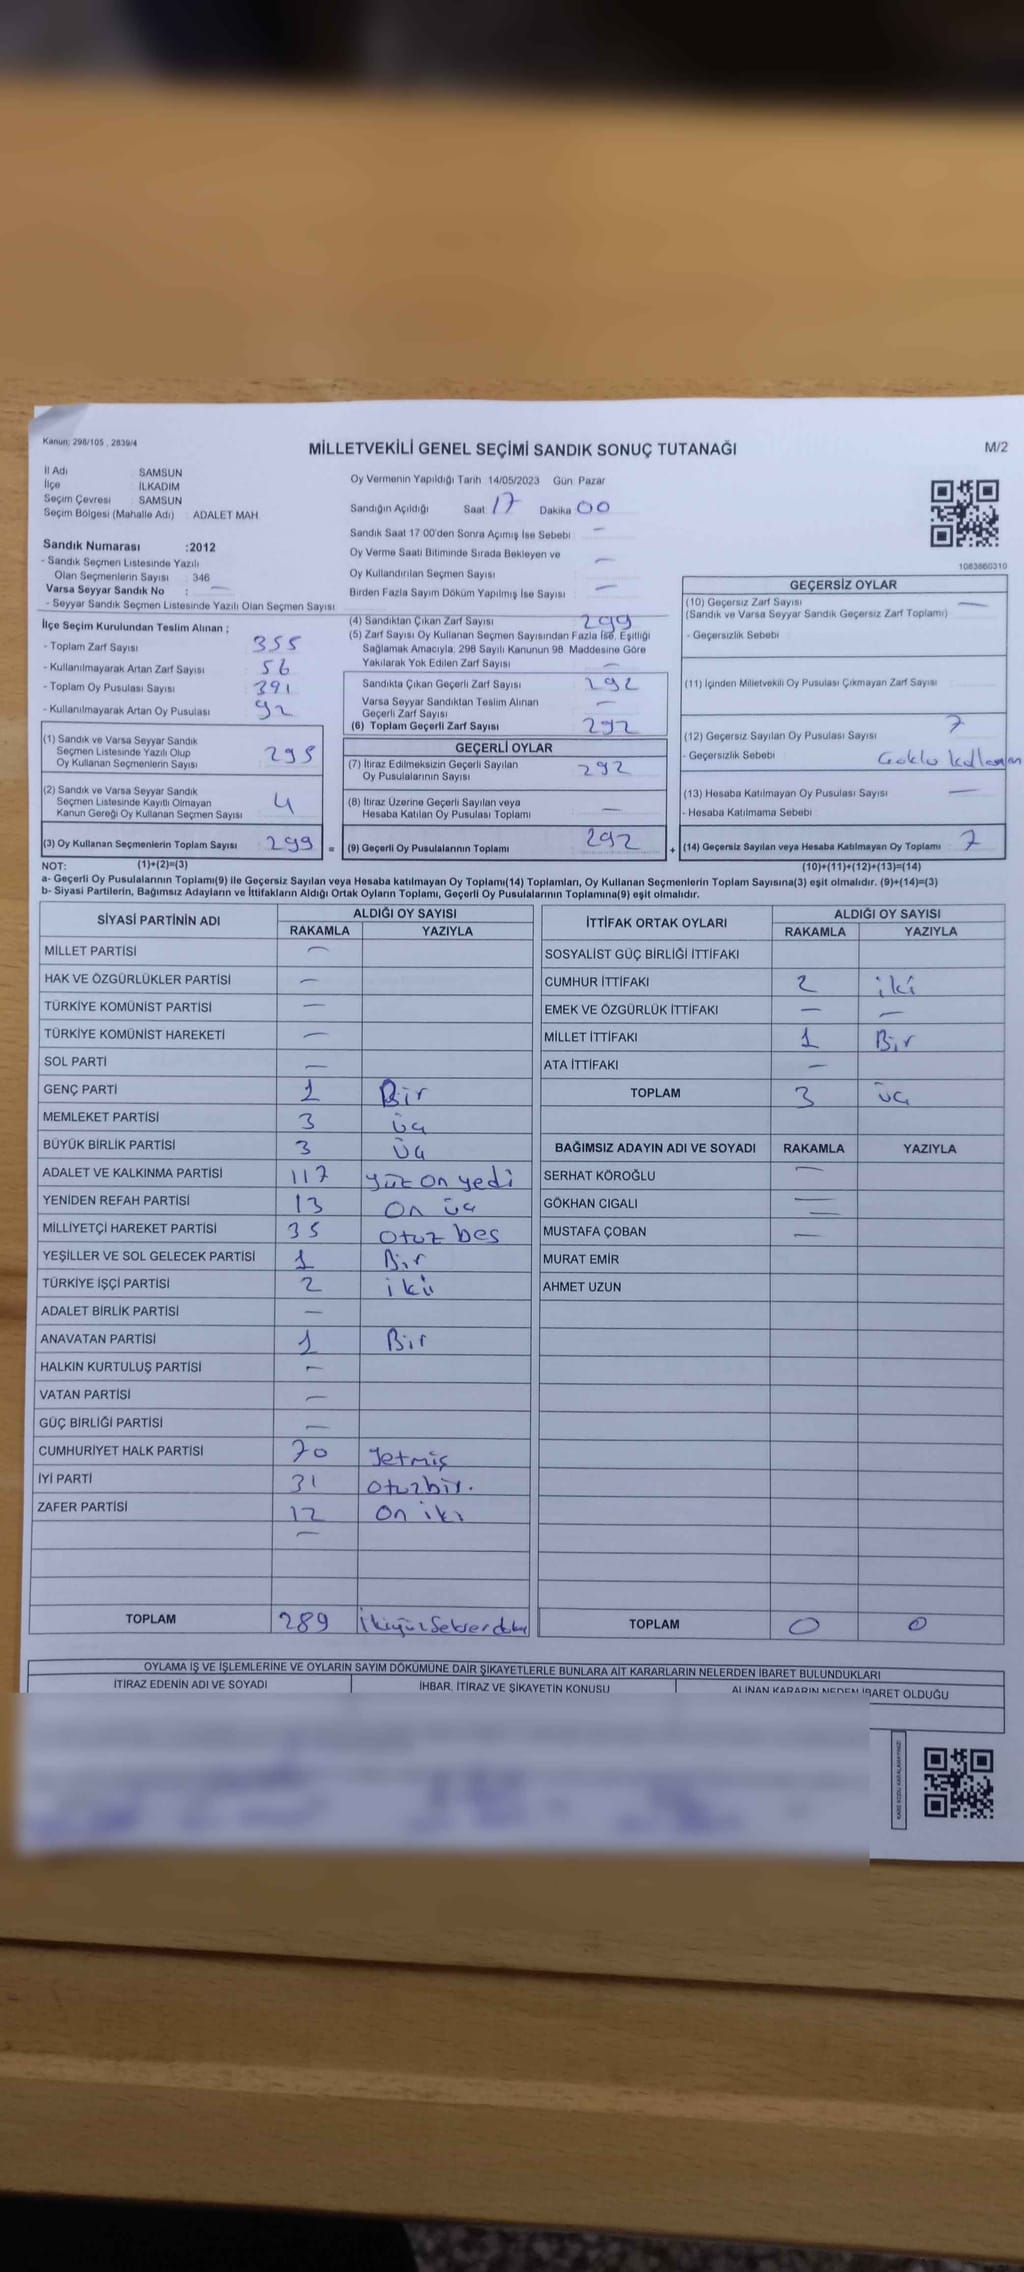 Kanun: 298/105 , 2839/4
MİLLETVEKİLİ GENEL SEÇİMİ SANDIK SONUÇ TUTANAĞI
M/2
İl Adı : SAMSUN
İlçe : İLKADIM
Seçim Çevresi : SAMSUN
Seçim Bölgesi (Mahalle Adı) : ADALET MAH.
Sandık Numarası :2012
- Sandık Seçmen Listesinde Yazılı
Olan Seçmenlerin Sayısı : 346
Varsa Seyyar Sandık No : —
- Seyyar Sandık Seçmen Listesinde Yazılı Olan Seçmen Sayısı
Oy Vermenin Yapıldığı Tarih 14/05/2023 Gün Pazar
Sandığın Açıldığı Saat 17 Dakika 00
Sandık Saat 17:00'den Sonra Açımış İse Sebebi —
Oy Verme Saati Bitiminde Sırada Bekleyen ve
Oy Kullandırılan Seçmen Sayısı —
Birden Fazla Sayım Döküm Yapılmış İse Sayısı —
1083860310
İlçe Seçim Kurulundan Teslim Alınan ;
- Toplam Zarf Sayısı 355
- Kullanılmayarak Artan Zarf Sayısı 56
- Toplam Oy Pusulası Sayısı 391
- Kullanılmayarak Artan Oy Pusulası 92
(1) Sandık ve Varsa Seyyar Sandık
Seçmen Listesinde Yazılı Olup
Oy Kullanan Seçmenlerin Sayısı 295
(2) Sandık ve Varsa Seyyar Sandık
Seçmen Listesinde Kayıtlı Olmayan
Kanun Gereği Oy Kullanan Seçmen Sayısı 4
(3) Oy Kullanan Seçmenlerin Toplam Sayısı 299 =
(4) Sandıktan Çıkan Zarf Sayısı 299
(5) Zarf Sayısı Oy Kullanan Seçmen Sayısından Fazla İse, Eşitliği
Sağlamak Amacıyla, 298 Sayılı Kanunun 98. Maddesine Göre
Yakılarak Yok Edilen Zarf Sayısı —
Sandıkta Çıkan Geçerli Zarf Sayısı 292
Varsa Seyyar Sandıktan Teslim Alınan
Geçerli Zarf Sayısı —
(6) Toplam Geçerli Zarf Sayısı 292
GEÇERLİ OYLAR
(7) İtiraz Edilmeksizin Geçerli Sayılan
Oy Pusulalarının Sayısı 292
(8) İtiraz Üzerine Geçerli Sayılan veya
Hesaba Katılan Oy Pusulası Toplamı —
(9) Geçerli Oy Pusulalarının Toplamı 292 +
GEÇERSİZ OYLAR
(10) Geçersiz Zarf Sayısı —
(Sandık ve Varsa Seyyar Sandık Geçersiz Zarf Toplamı)
- Geçersizlik Sebebi
(11) İçinden Milletvekili Oy Pusulası Çıkmayan Zarf Sayısı
(12) Geçersiz Sayılan Oy Pusulası Sayısı 7
- Geçersizlik Sebebi
(13) Hesaba Katılmayan Oy Pusulası Sayısı —
- Hesaba Katılmama Sebebi
(14) Geçersiz Sayılan veya Hesaba Katılmayan Oy Toplamı 7
NOT: (1)+(2)=(3) (10)+(11)+(12)+(13)=(14)
a- Geçerli Oy Pusulalarının Toplamı(9) ile Geçersiz Sayılan veya Hesaba katılmayan Oy Toplamı(14) Toplamları, Oy Kullanan Seçmenlerin Toplam Sayısına(3) eşit olmalıdır. (9)+(14)=(3)
b- Siyasi Partilerin, Bağımsız Adayların ve İttifakların Aldığı Ortak Oyların Toplamı, Geçerli Oy Pusulalarının Toplamına(9) eşit olmalıdır.
SİYASİ PARTİNİN ADI ALDIĞI OY SAYISI
RAKAMLA YAZIYLA
MİLLET PARTİSİ —
HAK VE ÖZGÜRLÜKLER PARTİSİ —
TÜRKİYE KOMÜNİST PARTİSİ —
TÜRKİYE KOMÜNİST HAREKETİ —
SOL PARTİ —
GENÇ PARTİ 1 Bir
MEMLEKET PARTİSİ 3 üç
BÜYÜK BİRLİK PARTİSİ 3 üç
ADALET VE KALKINMA PARTİSİ 117 yüz on yedi
YENİDEN REFAH PARTİSİ 13 on üç
MİLLİYETÇİ HAREKET PARTİSİ 35 otuz beş
YEŞİLLER VE SOL GELECEK PARTİSİ 1 Bir
TÜRKİYE İŞÇİ PARTİSİ 2 iki
ADALET BİRLİK PARTİSİ —
ANAVATAN PARTİSİ 1 Bir
HALKIN KURTULUŞ PARTİSİ —
VATAN PARTİSİ —
GÜÇ BİRLİĞİ PARTİSİ —
CUMHURİYET HALK PARTİSİ 70 Yetmiş
İYİ PARTİ 31 otuzbir.
ZAFER PARTİSİ 12 on iki
—
TOPLAM 289
İTTİFAK ORTAK OYLARI ALDIĞI OY SAYISI
RAKAMLA YAZIYLA
SOSYALİST GÜÇ BİRLİĞİ İTTİFAKI
CUMHUR İTTİFAKI 2 iki
EMEK VE ÖZGÜRLÜK İTTİFAKI — —
MİLLET İTTİFAKI 1 Bir
ATA İTTİFAKI —
TOPLAM 3 üç
BAĞIMSIZ ADAYIN ADI VE SOYADI RAKAMLA YAZIYLA
SERHAT KÖROĞLU —
GÖKHAN CIGALI —
MUSTAFA ÇOBAN —
MURAT EMİR
AHMET UZUN
TOPLAM 0 0
OYLAMA İŞ VE İŞLEMLERİNE VE OYLARIN SAYIM DÖKÜMÜNE DAİR ŞİKAYETLERLE BUNLARA AİT KARARLARIN NELERDEN İBARET BULUNDUKLARI
İTİRAZ EDENİN ADI VE SOYADI İHBAR, İTİRAZ VE ŞİKAYETİN KONUSU ALINAN KARARIN NEDEN İBARET OLDUĞU